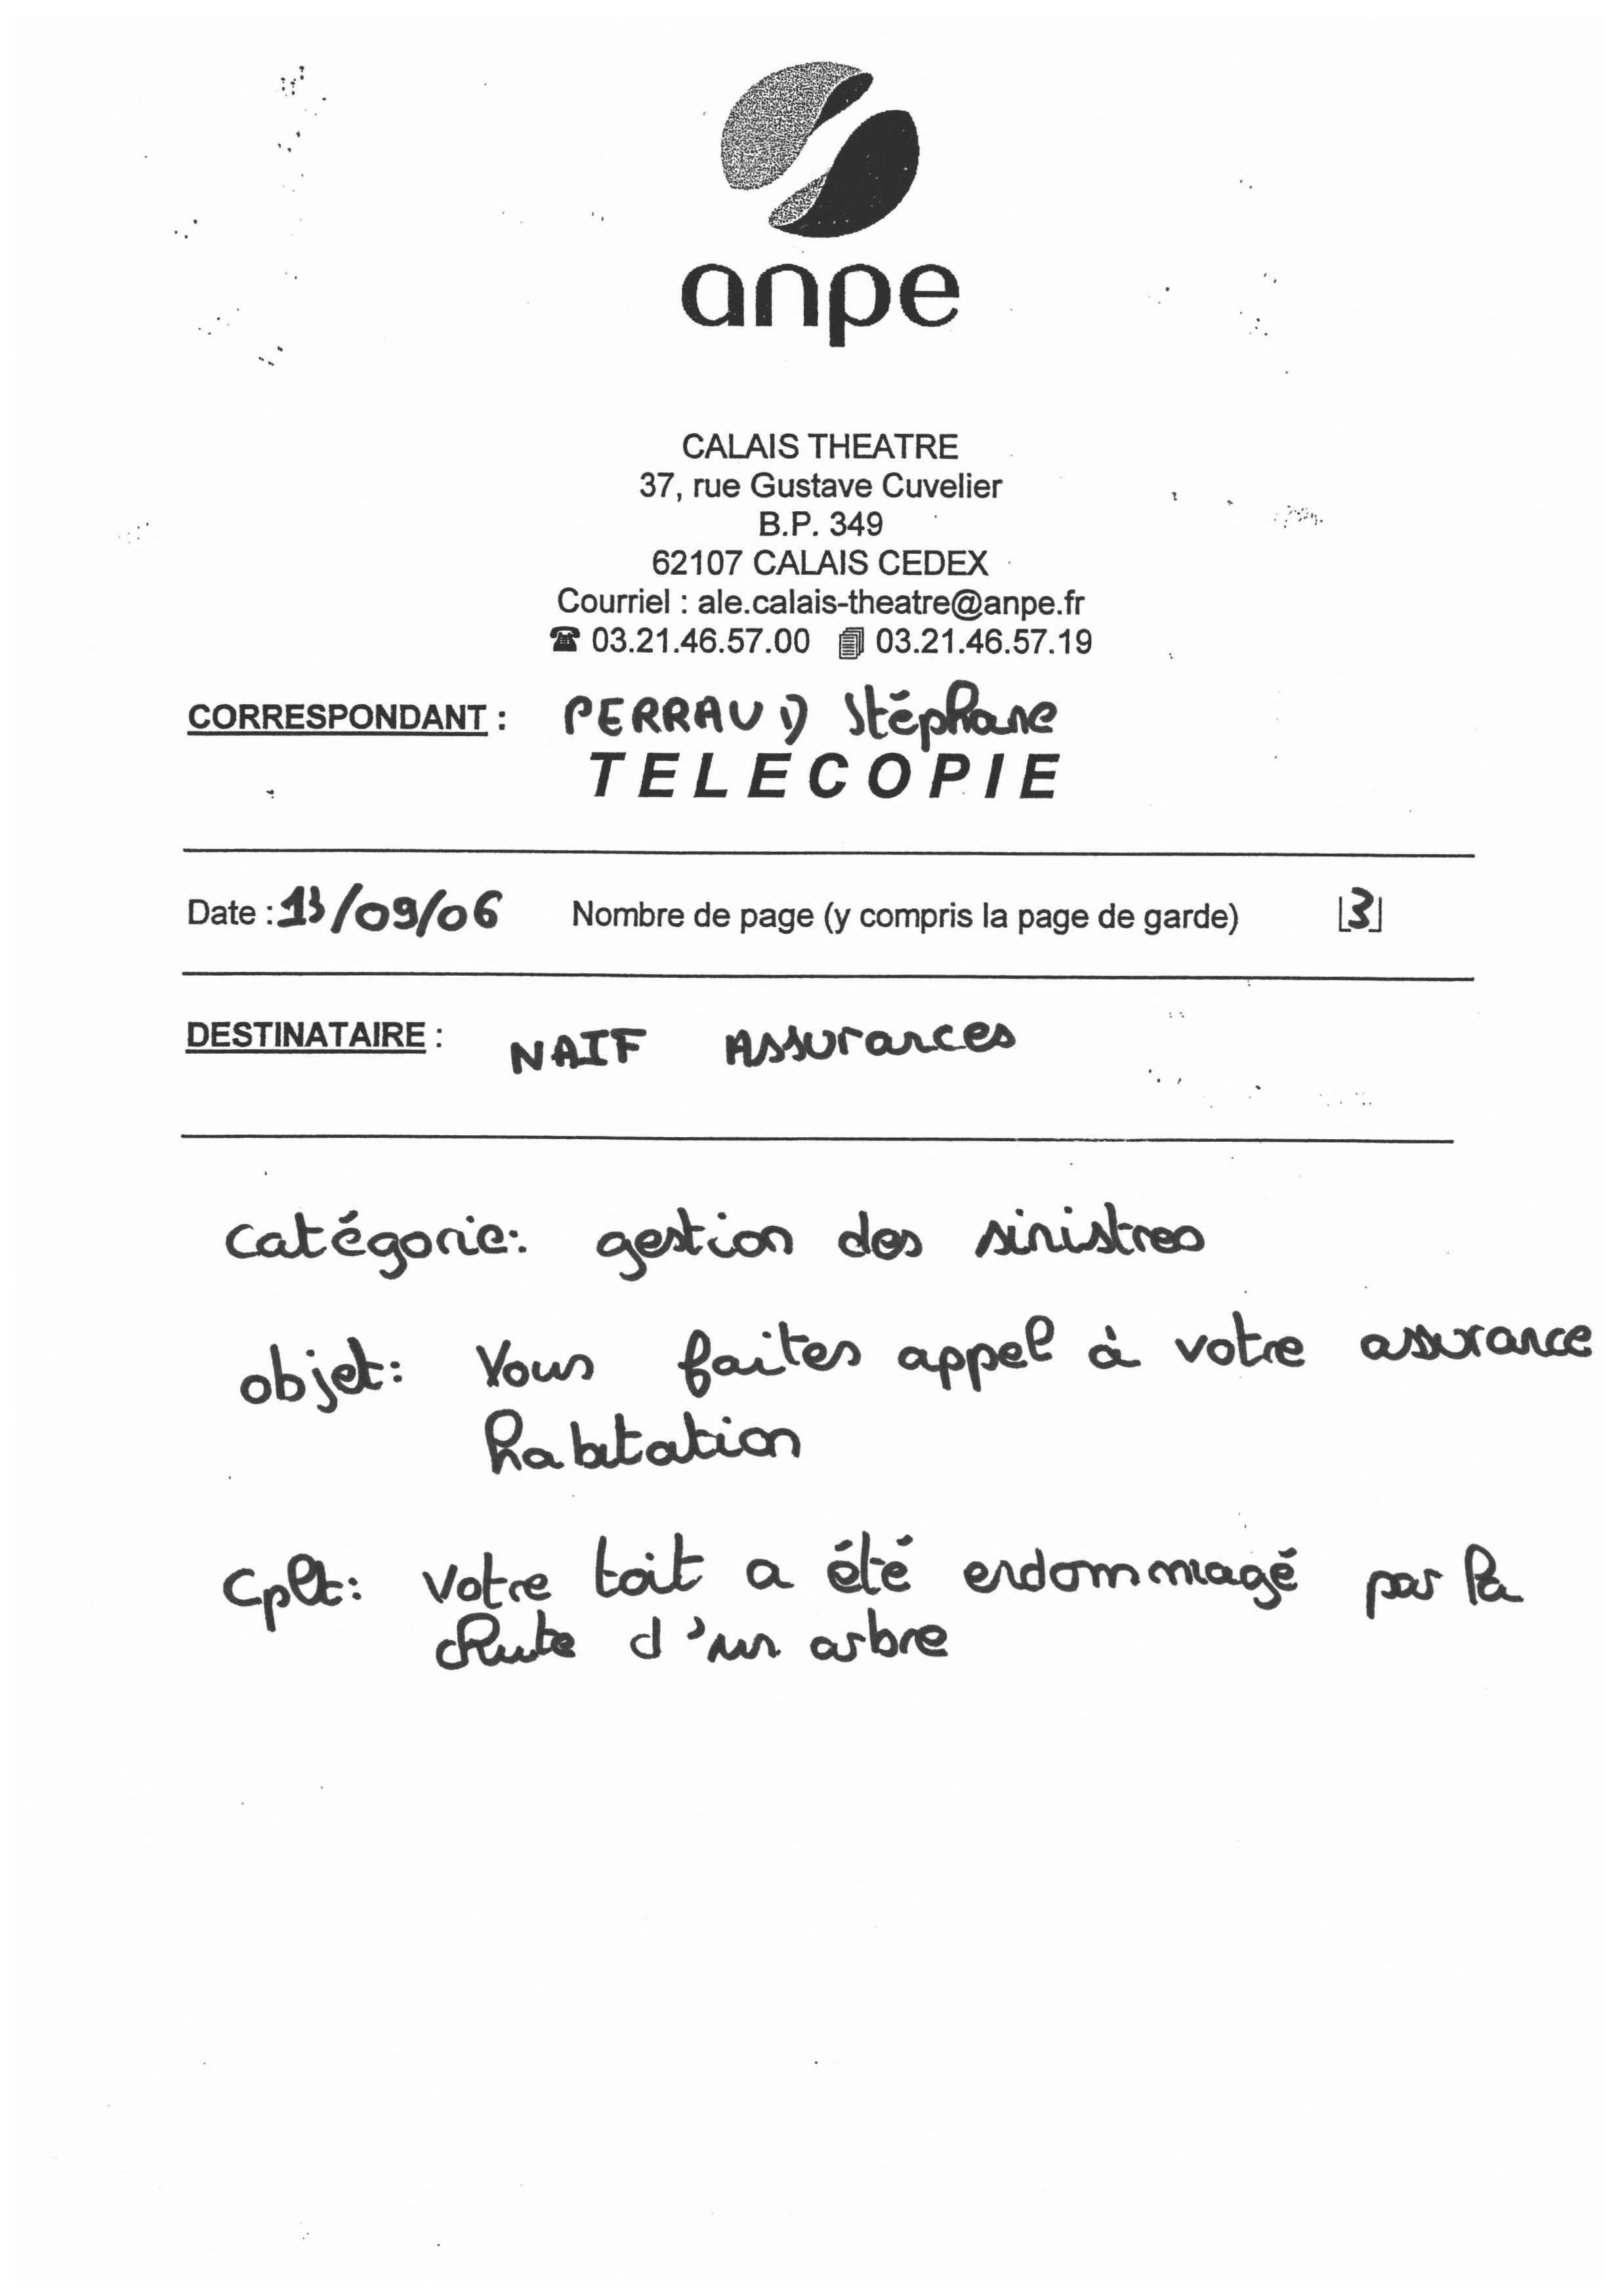 anpe
CALAIS THEATRE
37, rue Gustave Cuvelier
B.P. 349
62107 CALAIS CEDEX
Courriel : ale.calais-theatre@anpe.fr
☎ 03.21.46.57.00 03.21.46.57.19
CORRESPONDANT : PERRAUD Stéphane
TELECOPIE
Date : 13/09/06 Nombre de page (y compris la page de garde) 3
DESTINATAIRE : NAIF Assurances
Catégorie: gestion des sinistres
objet: Vous faites appel à votre assurance
habitation
Cplt: Votre toit a été endommagé par la
chute d'un arbre